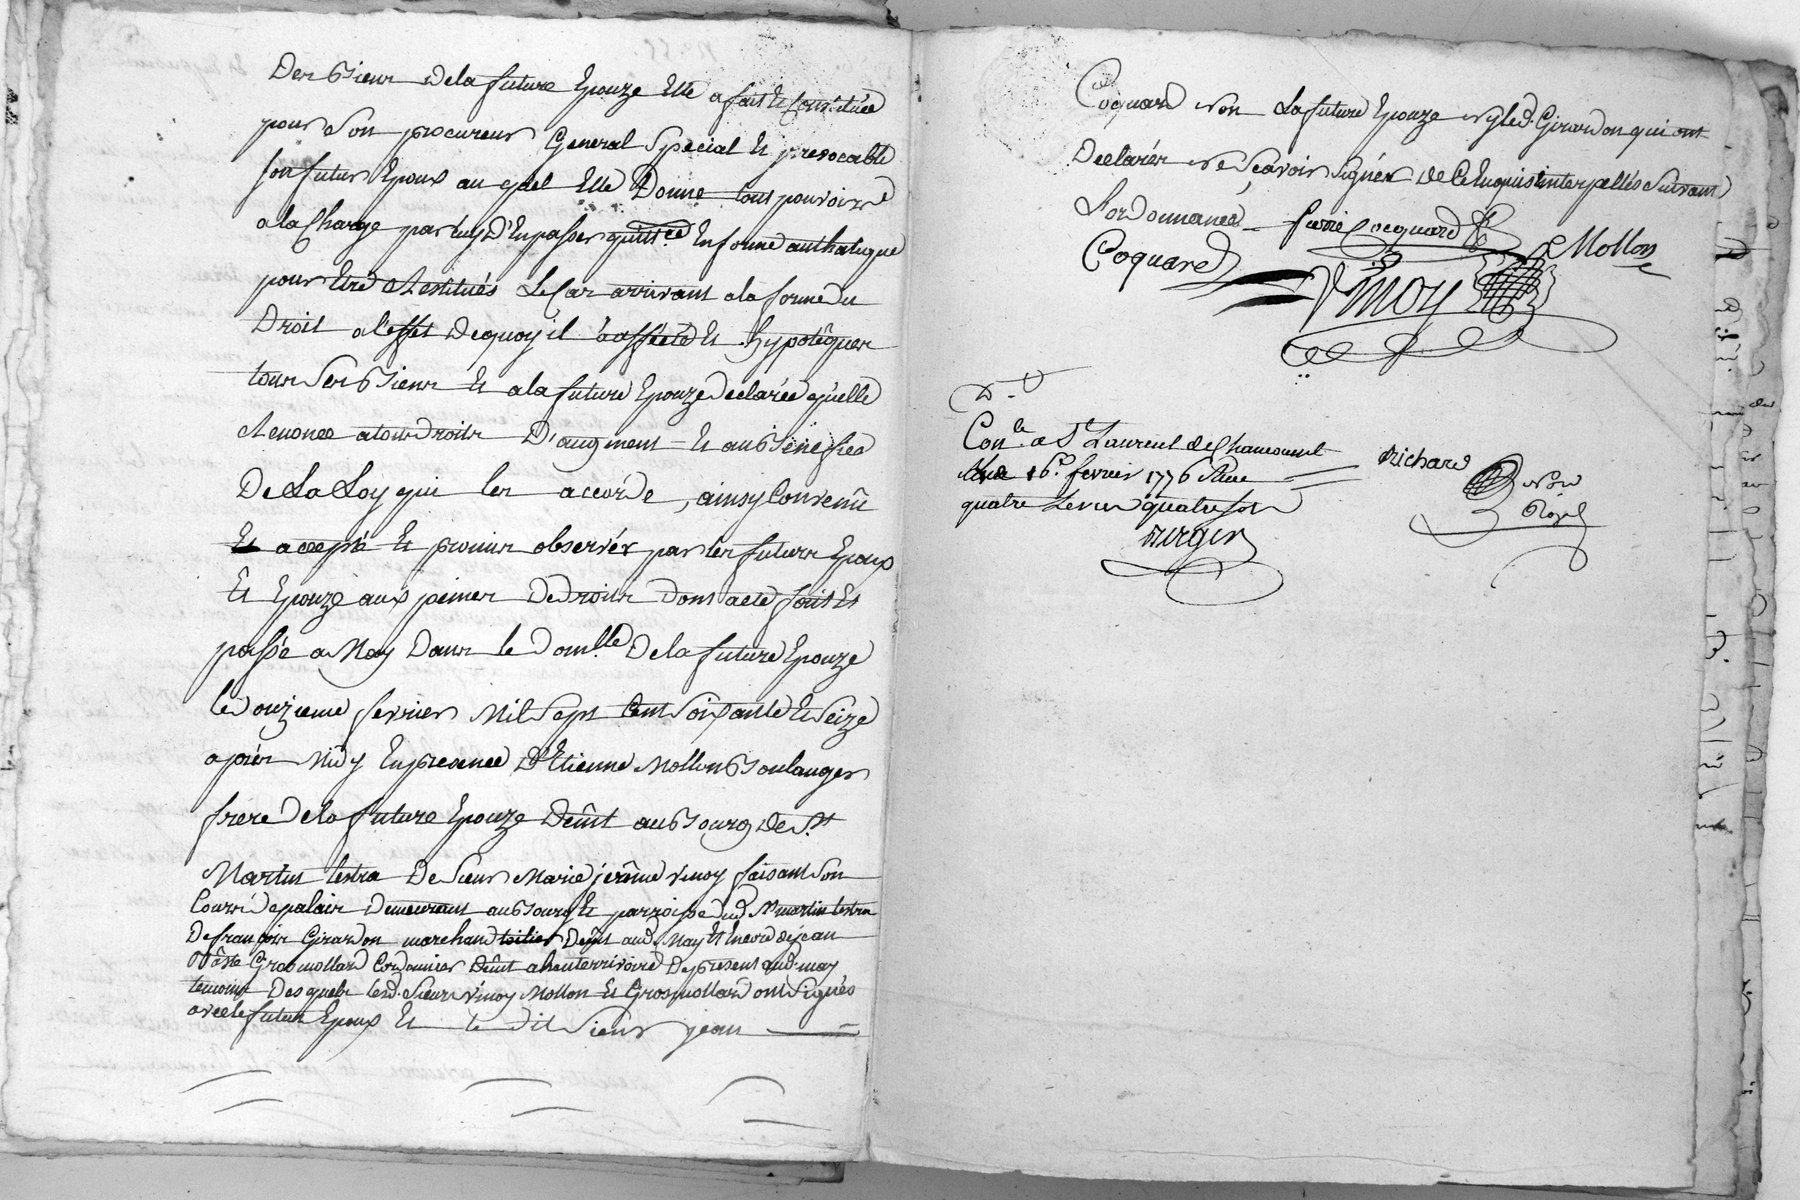 Des Biens de la future Epouze Elle a fait Et Constitué
pour Son procureur General Special Et jrrevocable
son futur Epoux au quel Elle Donne tout pouvoirs
a la Charge par luy D'En passer quitt.ce En forme authatique
pour Etre Restitués Le Cas arrivant a la forme du
Droit a l'effet de quoy il a affecté Et hypotéquer
tous Ses Biens Et a la future Epouze declarée qu'elle
Renonce a tous droits D'augment Et au Benefice
De La Loy qui les accorde, ainsy Convenû
Et accepté Et promis observér par les futurs Epoux
Et Epouze aux peines De droits dont acte fait Et
passé a Nay Dans le Dom.lle De la future Epouze
le douzieme fevrier Mil Sept Cent Soixante Et Seize
aprés Midy En presence D'Etienne Mollon Boulanger
frere De la future Epouze Demt au Bourg de St
Martin lestra De Sieur Marie jerôme vinoy faisant Son
Cours de palais Demeurant au Bourg Et parroisse dud. St martin lestra
De françois Girardon marchand toilier Demt aud. Nay Et Encore de jean
Bâte Grosmollard Cordonnier Demt a hauterrivoire De present aud. nay
temoins Desquels lesd. Sieurs vinoy Mollon Et Grosmollard ont Signés
avec le futur Epoux Et le dit Sieur jean
Coquard Non La future Epouze ny led. Girardon qui ont
Declarér Ne Scavoir Signér de Ce Enquis Et interpellés Suivant
L'ordonnance
pierre Cocquard
Coquard
Vinoy
Mollon
Con.le a St Laurent de Chamousset
16e fevrier 1776 Reçu
quatre Livres quatre Sols
richard
Nore
Royal